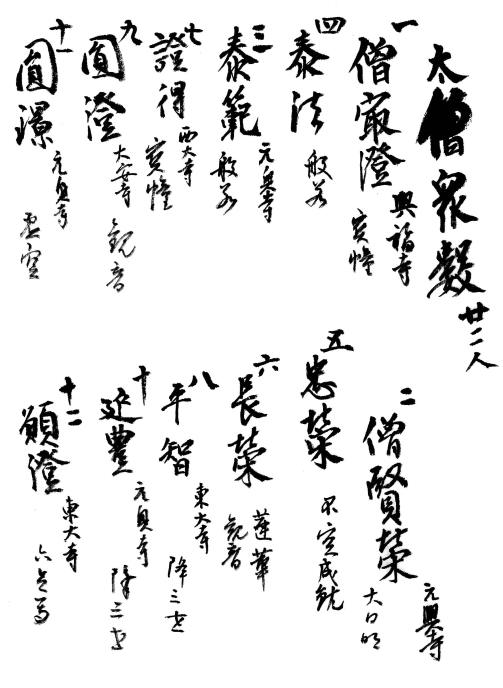 太僧衆數廿二人
一 僧㝡澄 興福寺 寳幢
二 僧賢榮 元興寺 大日
三 泰範 元興寺 般若
四 泰法 般若
五 忠榮 不空成就
六 長榮 蓮華 観音
七 證得 西大寺 寳幢
八 平智 東大寺 降三世
九 圓澄 大安寺 観音
十 延豊 元興寺 降三世
十一 圓璟 元興寺 虚空
十二 願澄 東大寺 六足